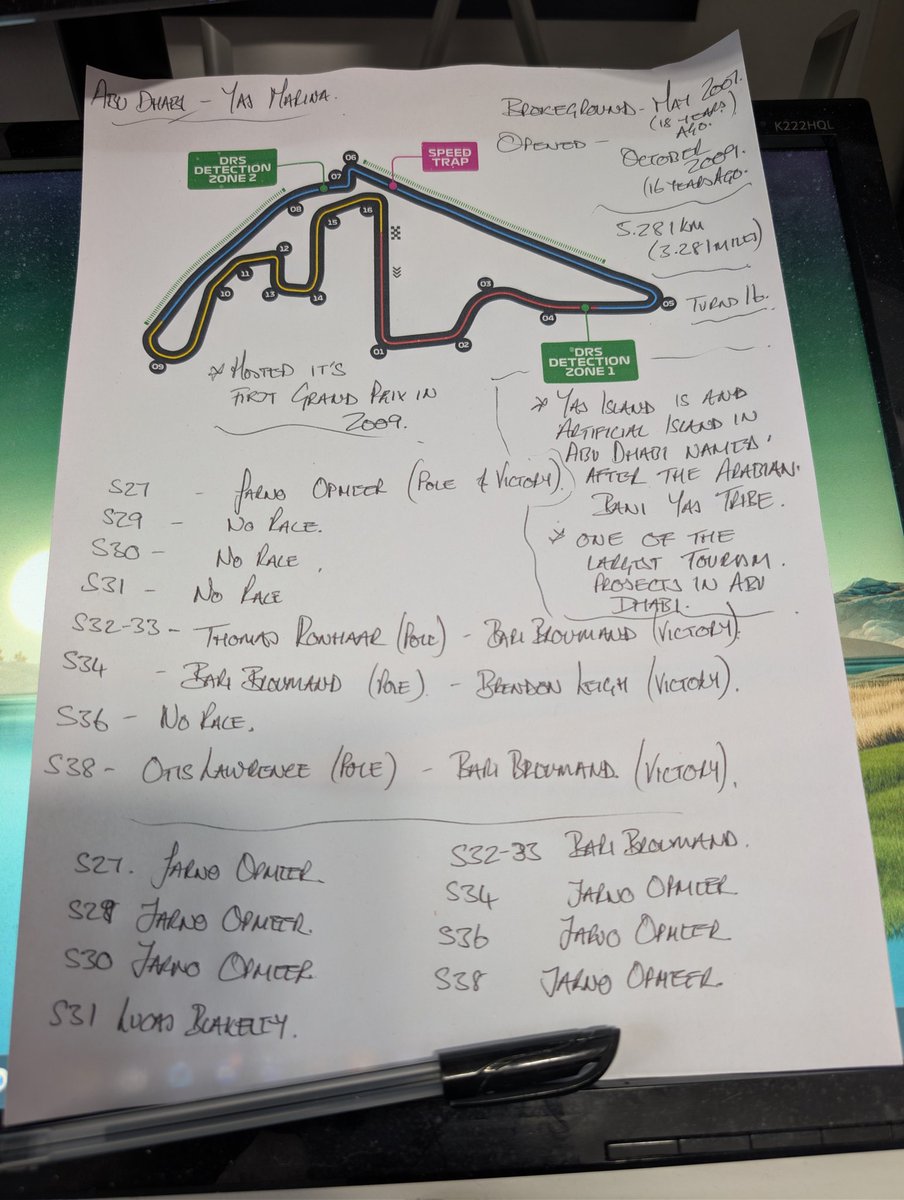 ABU DHABI - YAS MARINA.
BROKEGROUND - MAY 2007.
(18 YEARS
AGO.
OPENED - OCTOBER
2009.
(16 YEARS AGO.
K222HQL
5.281KM
(3.281MILES)
TURNS 16.
DRS
DETECTION
ZONE 2
SPEED
TRAP
06
07
08
15
16
12
11
10
13
14
09
01
02
03
04
05
DRS
DETECTION
ZONE 1
* HOSTED IT'S
FIRST GRAND PRIX IN
2009.
* YAS ISLAND IS AND
ARTIFICIAL ISLAND IN
ABU DHABI NAMED
AFTER THE ARABIAN
BANI YAS TRIBE.
* ONE OF THE
LARGEST TOURISM
PROJECTS IN ABU
DHABI.
S27 - JARNO OPMEER (POLE & VICTORY).
S29 - NO RACE.
S30 - NO RACE.
S31 - NO RACE
S32-33 - THOMAS RONHAAR (POLE) - BARI BROUMAND (VICTORY).
S34 - BARI BROUMAND (POLE). - BRENDON LEIGH (VICTORY).
S36 - NO RACE.
S38 - OTIS LAWRENCE (POLE) - BARI BROUMAND. (VICTORY).
S27. JARNO OPMEER.
S29 JARNO OPMEER.
S30 JARNO OPMEER
S31 LUCAS BLAKELEY.
S32-33 BARI BROUMAND.
S34 JARNO OPMEER
S36 JARNO OPMEER
S38 JARNO OPMEER.